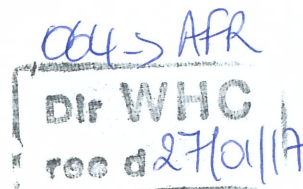 064 -> AFR
Dir WHC
rec d 27/01/17